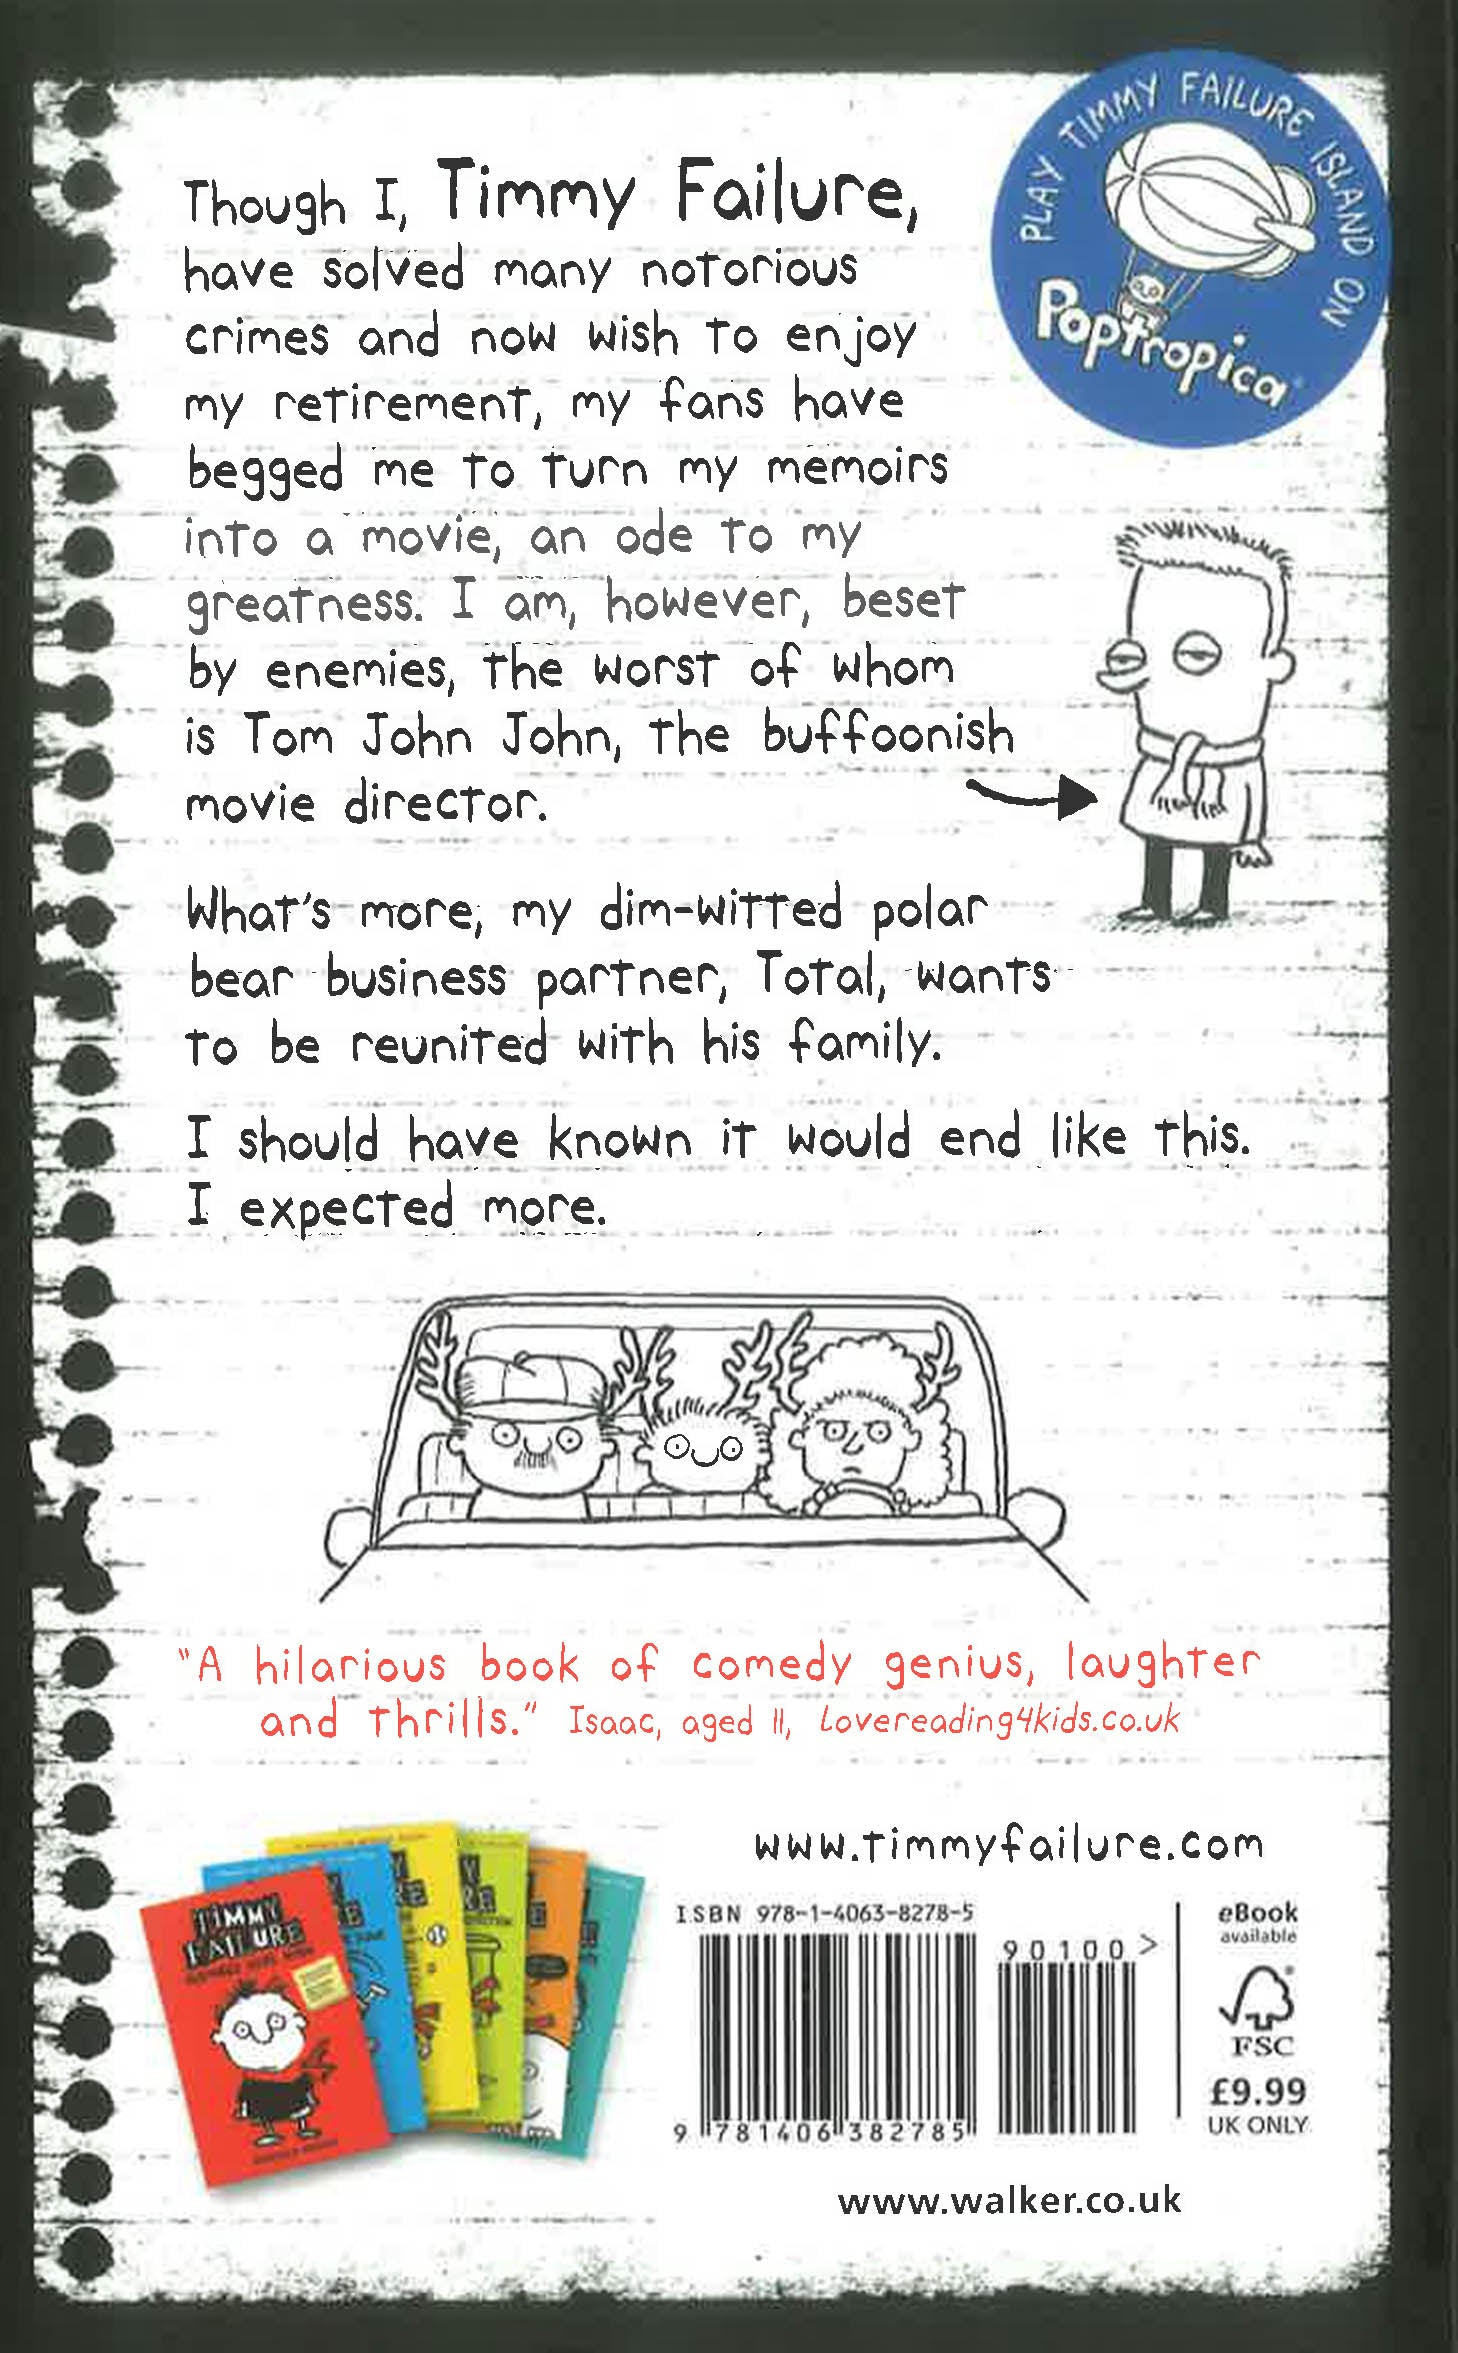 PLAY TIMMY FAILURE ISLAND ON
Poptropica
Though I, Timmy Failure,
have solved many notorious
crimes and now wish to enjoy
my retirement, my fans have
begged me to turn my memoirs
into a movie, an ode to my
greatness. I am, however, beset
by enemies, the worst of whom
is Tom John John, the buffoonish
movie director.
What's more, my dim-witted polar
bear business partner, Total, wants
to be reunited with his family.
I should have known it would end like this.
I expected more.
"A hilarious book of comedy genius, laughter
and thrills." Isaac, aged 11, Lovereading4kids.co.uk
TIMMY
FAILURE
www.timmyfailure.com
ISBN 978-1-4063-8278-5
90100 >
9 781406 382785
eBook
available
FSC
£9.99
UK ONLY
www.walker.co.uk